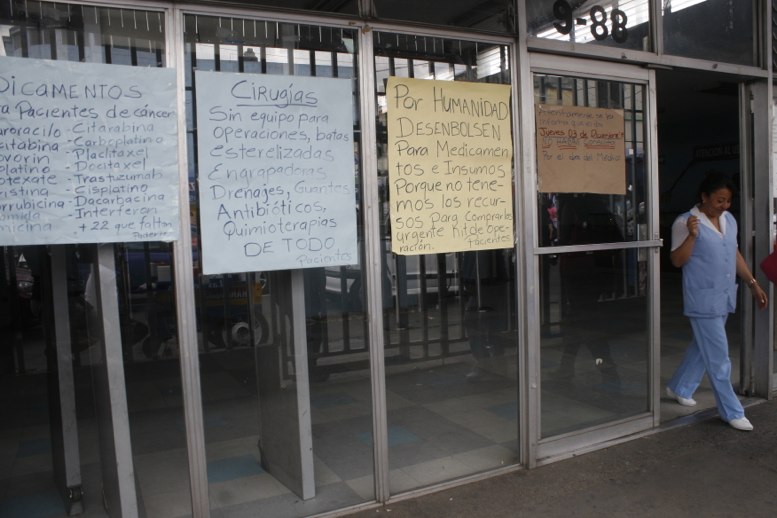 DICAMENTOS
ra Pacientes de cáncer
uroracilo - Citarabina
citabina - Carboplatino
ovorin - Placlitaxel
platino - Docetaxel
otexate - Trastuzumab
ristina - Cisplatino
orrubicina - Dacarbacina
omida - Interferon
micina + 22 que faltan
Pacientes
Cirugías
Sin equipo para
operaciones, batas
esterelizadas
Engrapadoras
Drenajes, Guantes
Antibióticos,
Quimioterapias
DE TODO
Pacientes
Por HUMANIDAD
DESENBOLSEN
Para Medicamen
tos e Insumos
Porque no tene-
mos los recur-
sos Para Comprarlos
urgente Kit de Ope-
ración.
Pacientes
9-88
informa que el
Jueves 03 de Diciembre
Por el día del Médico